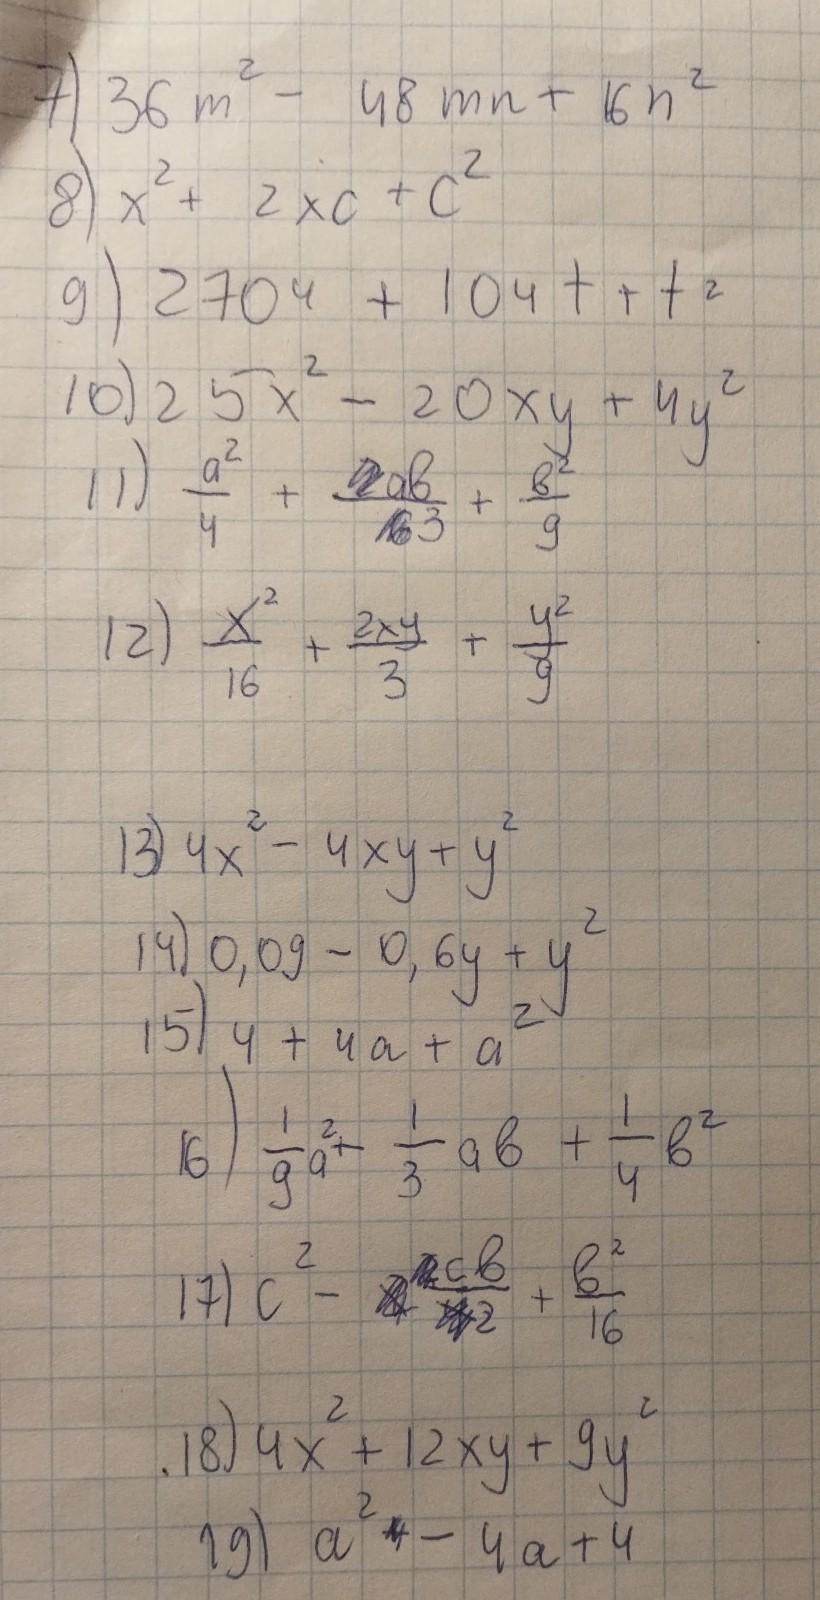 7) 36m² - 48mn + 16n²
8) x² + 2xc + c²
9) 2704 + 104t + t²
10) 25x² - 20xy + 4y²
11) a²/4 + ab/3 + b²/9
12) x²/16 + 2xy/3 + y²/9
13) 4x² - 4xy + y²
14) 0,09 - 0,6y + y²
15) 4 + 4a + a²
16) 1/9 a² + 1/3 ab + 1/4 b²
17) c² - cb/2 + b²/16
18) 4x² + 12xy + 9y²
19) a² - 4a + 4